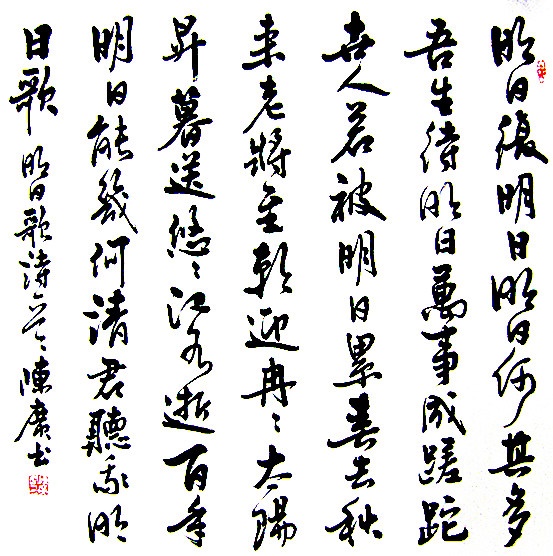 明日復明日明日何其多
吾生待明日萬事成蹉跎
世人若被明日累春去秋
来老將至朝迎冉々太陽
昇暮送悠々江水逝百年
明日能幾何清君聽我明
日歌 明日歌詩 陳書